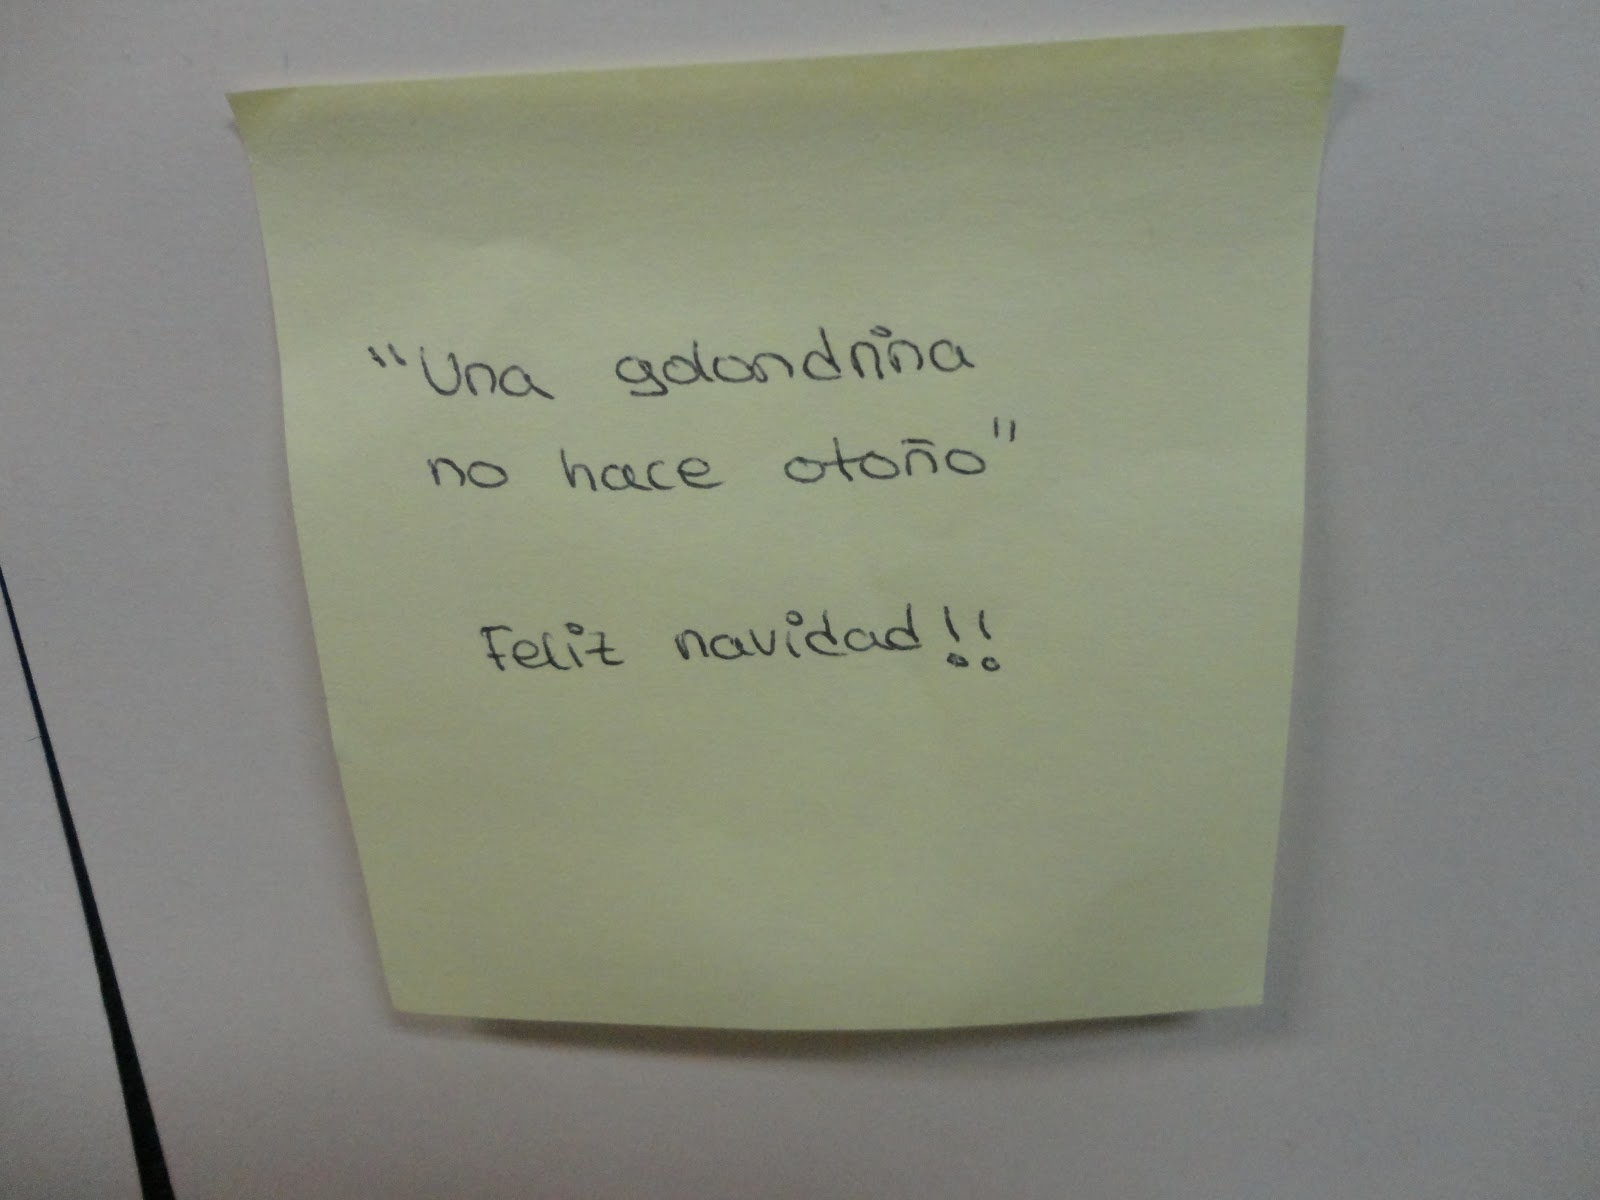 "Una golondrina
no hace otoño"
Feliz navidad!!